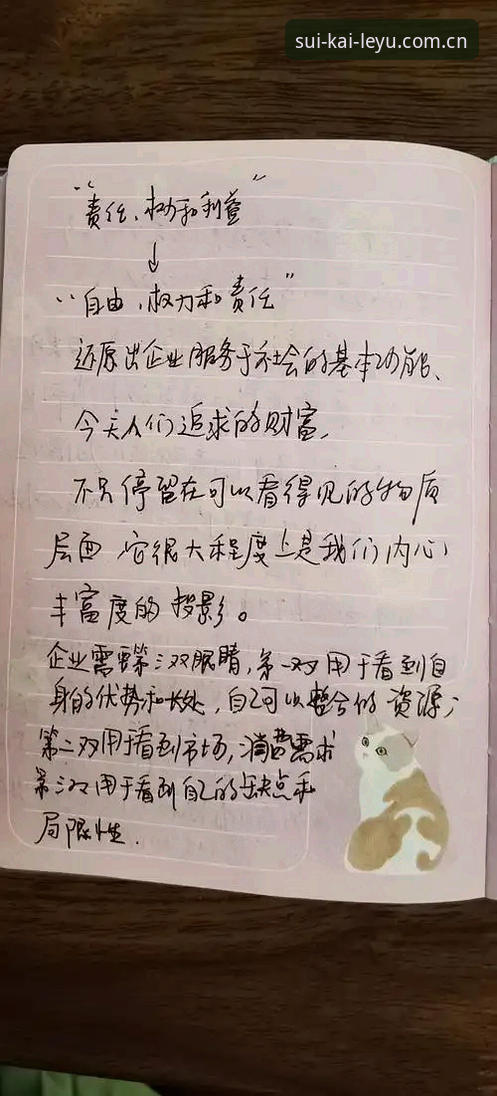 sui-kai-leyu.com.cn
“责任、权力和利益”
↓
“自由、权力和责任”
还原出企业服务于社会的基本功能、
今天人们追求的财富,
不只停留在可以看得见的物质
层面 它很大程度上是我们内心
丰富度的投影。
企业需要第三双眼睛,第一双用于看到自
身的优势和长处,自己可以整合的资源;
第二双用于看到市场,消费需求
第三双用于看到自己的缺点和
局限性.